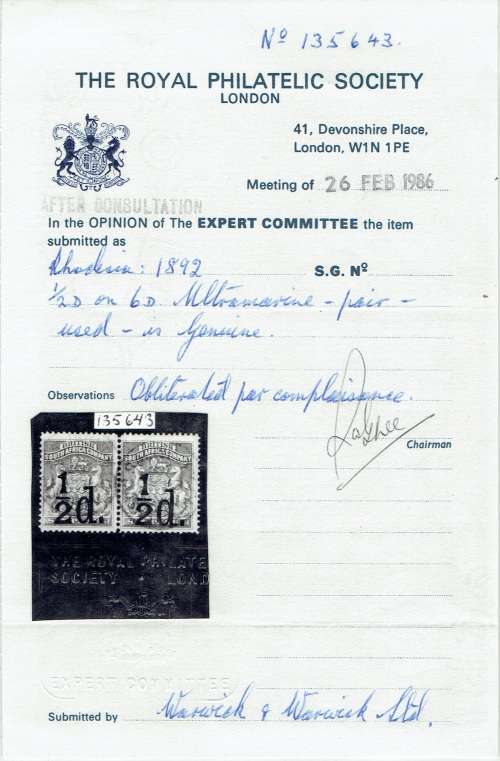 Nº 135643.
THE ROYAL PHILATELIC SOCIETY
LONDON
41, Devonshire Place,
London, W1N 1PE
Meeting of 26 FEB 1986
AFTER CONSULTATION
In the OPINION of The EXPERT COMMITTEE the item
submitted as
Rhodesia: 1892 S.G. Nº
½D on 6D. Ultramarine - pair -
used - is Genuine.
Observations Obliterated par complaisance.
Chairman
135643
BRITISH BRITISH
SOUTH AFRICA COMPANY SOUTH AFRICA COMPANY
½d. ½d.
THE ROYAL PHILATE
SOCIETY LOND
EXPERT COMMITTEE
Submitted by Warwick & Warwick Ltd.